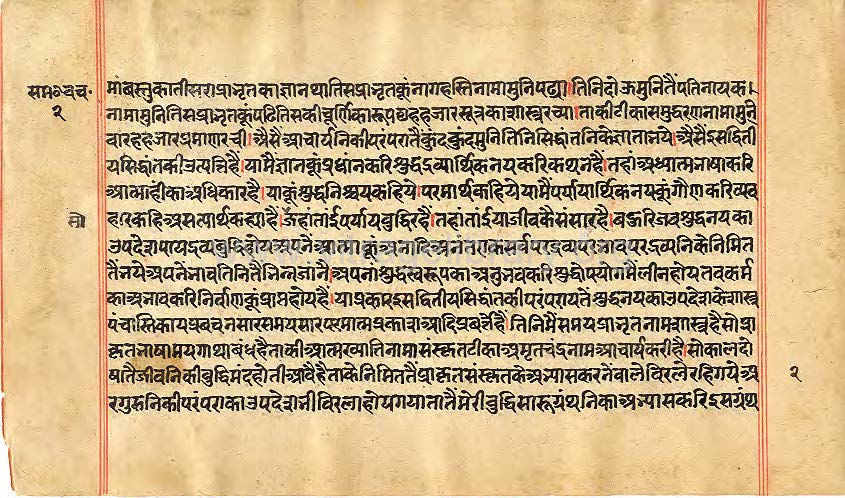 समयच॰ मां वस्तु का तीसरा प्राभृत का ज्ञान था तिस प्राभृत कूं नागहस्ति नामा मुनि पढ्या। तिनि दोऊ मुनि तैं यतिनायक।
२ नामा मुनि तिस प्राभृत कूं पढि तिस की चूर्णिका रूप छह हजार सूत्र का शास्त्र रच्या। ता की टीका समुद्धरण नामा मुनि
बारह हजार प्रमाण रची। औसैं आचार्यनि की परंपरा तैं कुंदकुंद मुनि तिनि सिद्धांतनि के ज्ञाता भये। औसैं इस द्विती
य सिद्धांत की उत्पत्ति है। या मैं ज्ञान कूं प्रधान करि शुद्ध द्रव्यार्थिक नय करि कथन है। तहां अध्यात्म भाषा करि
आत्मा ही का अधिकार है। या कूं शुद्ध निश्चय कहिये। परमार्थ कहिये या मैं पर्यायार्थिक नय कूं गौण करि व्यव
हार कहि असत्यार्थ कह्या है। जहां तांई पर्याय बुद्धि रहै। तहां तांई या जीव कै संसार है। बहुरि जब शुद्ध नय का
उपदेश पाय द्रव्य बुद्धि होय अपने आत्मा कूं अनादि अनंत एक सर्व परद्रव्य परभाव परद्रव्यनि के निमित्त
तैं भये अपने भाव तिनि तैं भिन्न जानै। अपना शुद्ध स्वरूप का अनुभव करि शुद्धोपयोग मैं लीन होय तब कर्म
का अभाव करि निर्वाण कूं प्राप्त होय है। या प्रकार इस द्वितीय सिद्धांत की परंपराय तैं शुद्ध नय का उपदेश के शास्त्र
पंचास्तिकाय प्रवचनसार समयसार परमात्मप्रकाश आदि प्रवर्त्तैं हैं। तिनि मैं समयप्राभृत नाम शास्त्र है सो प्रा
कृत भाषामय गाथाबंध है ता की आत्मख्याति नामा संस्कृत टीका अमृतचंद्र नाम आचार्य करी है। सो काल दो
ष तैं जीवनि की बुद्धि मंद होती आवै है ता के निमित्त तैं प्राकृत संस्कृत के अभ्यास करने वाले विरले रहि गये अ २
र गुरुनि की परंपरा का उपदेश भी विरला होय गया ता तैं मेरी बुद्धि सारू ग्रंथनि का अभ्यास करि इस ग्रंथ